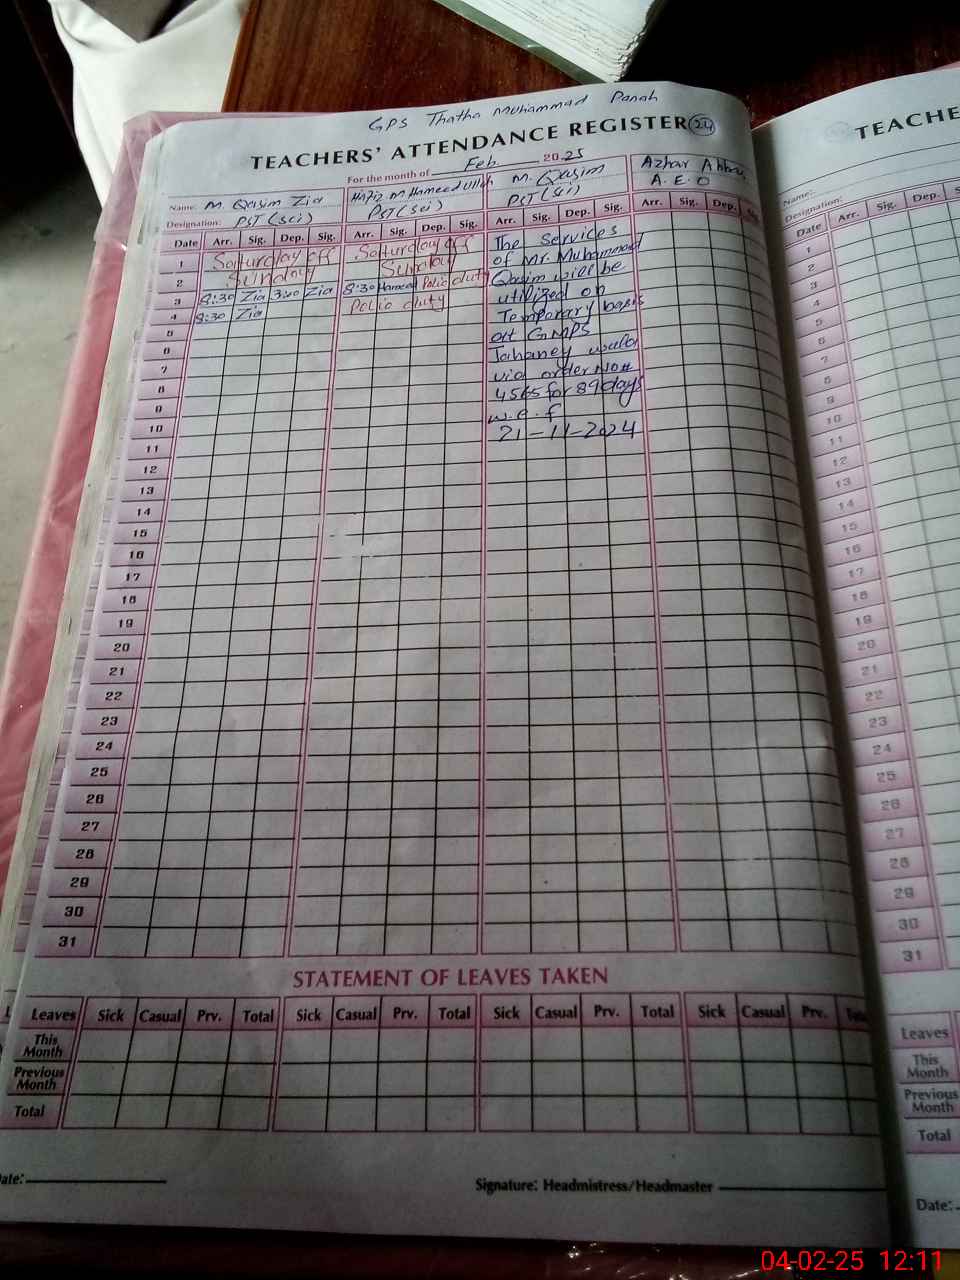 GPS Thatha Muhammad Panah
TEACHERS' ATTENDANCE REGISTER 24
For the month of Feb. 2025
Name: M. Qasim Zia Hafiz M Hameed Ullah M. Qasim Azhar Abbas
Designation: PST (Sci) PST (Sci) PST (Sci) A.E.O
Date Arr. Sig. Dep. Sig. Arr. Sig. Dep. Sig. Arr. Sig. Dep. Sig. Arr. Sig. Dep. Sig.
1 Saturday off Saturday off The Services
2 Sunday Sunday of Mr. Muhammad
3 8:30 Zia 3:00 Zia 8:30 Hameed Polio duty Qasim will be
4 8:30 Zia Polio duty utilized on
5 Temporary basis
6 at GMPS
7 Jahaney wala
8 via order No#
9 4565 for 89 days
10 w.e.f
11 21-11-2024
12
13
14
15
16
17
18
19
20
21
22
23
24
25
26
27
28
29
30
31
STATEMENT OF LEAVES TAKEN
Leaves Sick Casual Prv. Total Sick Casual Prv. Total Sick Casual Prv. Total Sick Casual Prv. Total
This Month
Previous Month
Total
ate:
Signature: Headmistress/Headmaster
TEACHE
Name:
Designation:
Date Arr. Sig. Dep. S
1
2
3
4
5
6
7
8
9
10
11
12
13
14
15
16
17
18
19
20
21
22
23
24
25
26
27
28
29
30
31
Leaves
This Month
Previous Month
Total
Date:
04-02-25 12:11